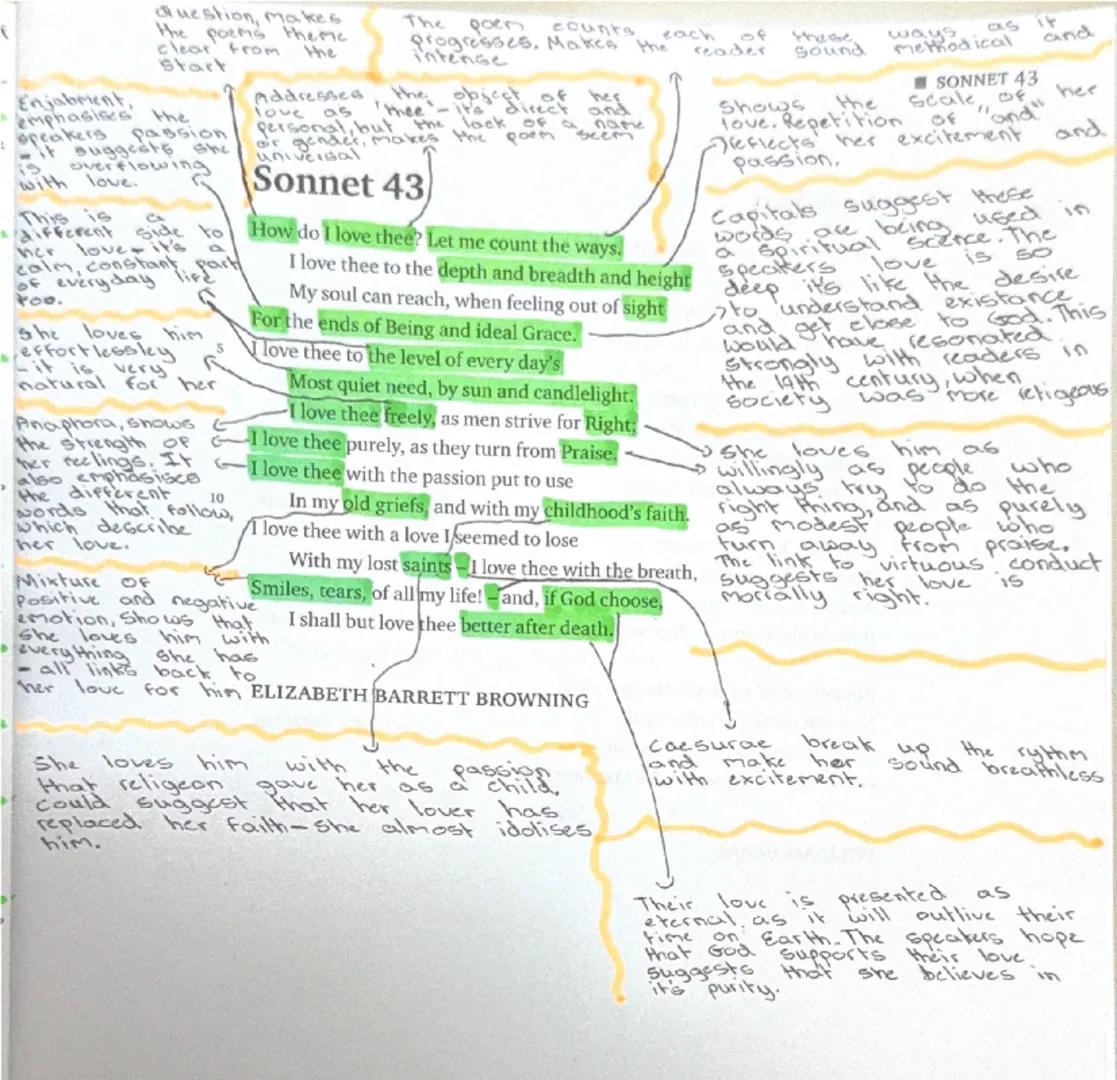 question, makes
the poems theme
clear from the
start
The poem counts each of these ways as it
progresses. Makes the reader sound methodical and
intense
■ SONNET 43
Enjabment,
emphasises the
speakers passion
- it suggests she
is overflowing
with love.
Addresses the object of her
love as 'thee' - it's direct and
personal, but the lack of a name
or gender, makes the poem seem
universal
shows the scale of her
love. Repetition of "and"
reflects her excitement and
passion.
Sonnet 43
How do I love thee? Let me count the ways.
I love thee to the depth and breadth and height
My soul can reach, when feeling out of sight
For the ends of Being and ideal Grace.
5 I love thee to the level of every day's
Most quiet need, by sun and candlelight.
I love thee freely, as men strive for Right;
I love thee purely, as they turn from Praise.
I love thee with the passion put to use
10 In my old griefs, and with my childhood's faith.
I love thee with a love I seemed to lose
With my lost saints – I love thee with the breath,
Smiles, tears, of all my life! – and, if God choose,
I shall but love thee better after death.
ELIZABETH BARRETT BROWNING
This is a
different side to
her love - it's a
calm, constant part
of everyday life
too.
she loves him
effortlessley
- it is very
natural for her
Anaphora, shows
the strength of
her feelings. It
also emphasises
the different
words that follow,
which describe
her love.
Mixture of
positive and negative
emotion, shows that
she loves him with
everything she has
- all links back to
her love for him
capitals suggest these
words are being used in
a spiritual scence. The
speakers love is so
deep it's like the desire
to understand existance
and get close to God. This
would have resonated
strongly with readers in
the 19th century, when
society was more religeous
she loves him as
willingly as people who
always try to do the
right thing, and as purely
as modest people who
turn away from praise.
The link to virtuous conduct
suggests her love is
morally right.
She loves him with the passion
that religeon gave her as a child.
could suggest that her lover has
replaced her faith - she almost idolises
him.
caesurae break up the rythm
and make her sound breathless
with excitement.
Their love is presented as
eternal, as it will outlive their
time on Earth. The speakers hope
that God supports their love
suggests that she believes in
it's purity.